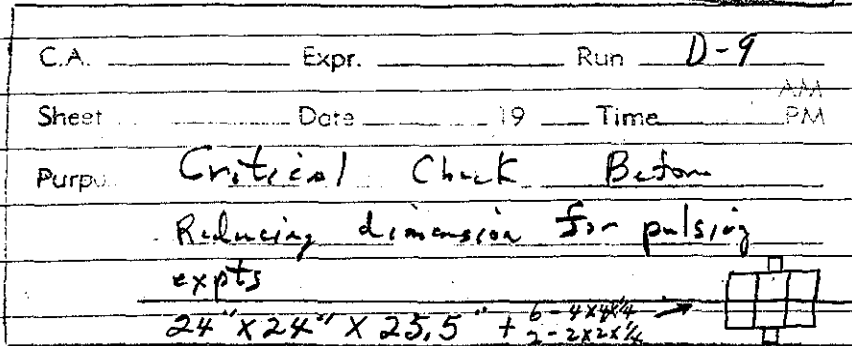 C.A. Expr. Run D-9
Sheet Date 19 Time AM PM
Purpo Critical Check Before
Reducing dimension for pulsing
expts
24" x 24" x 25.5" + 6 - 4x4x1/4
2 - 2x2x1/4